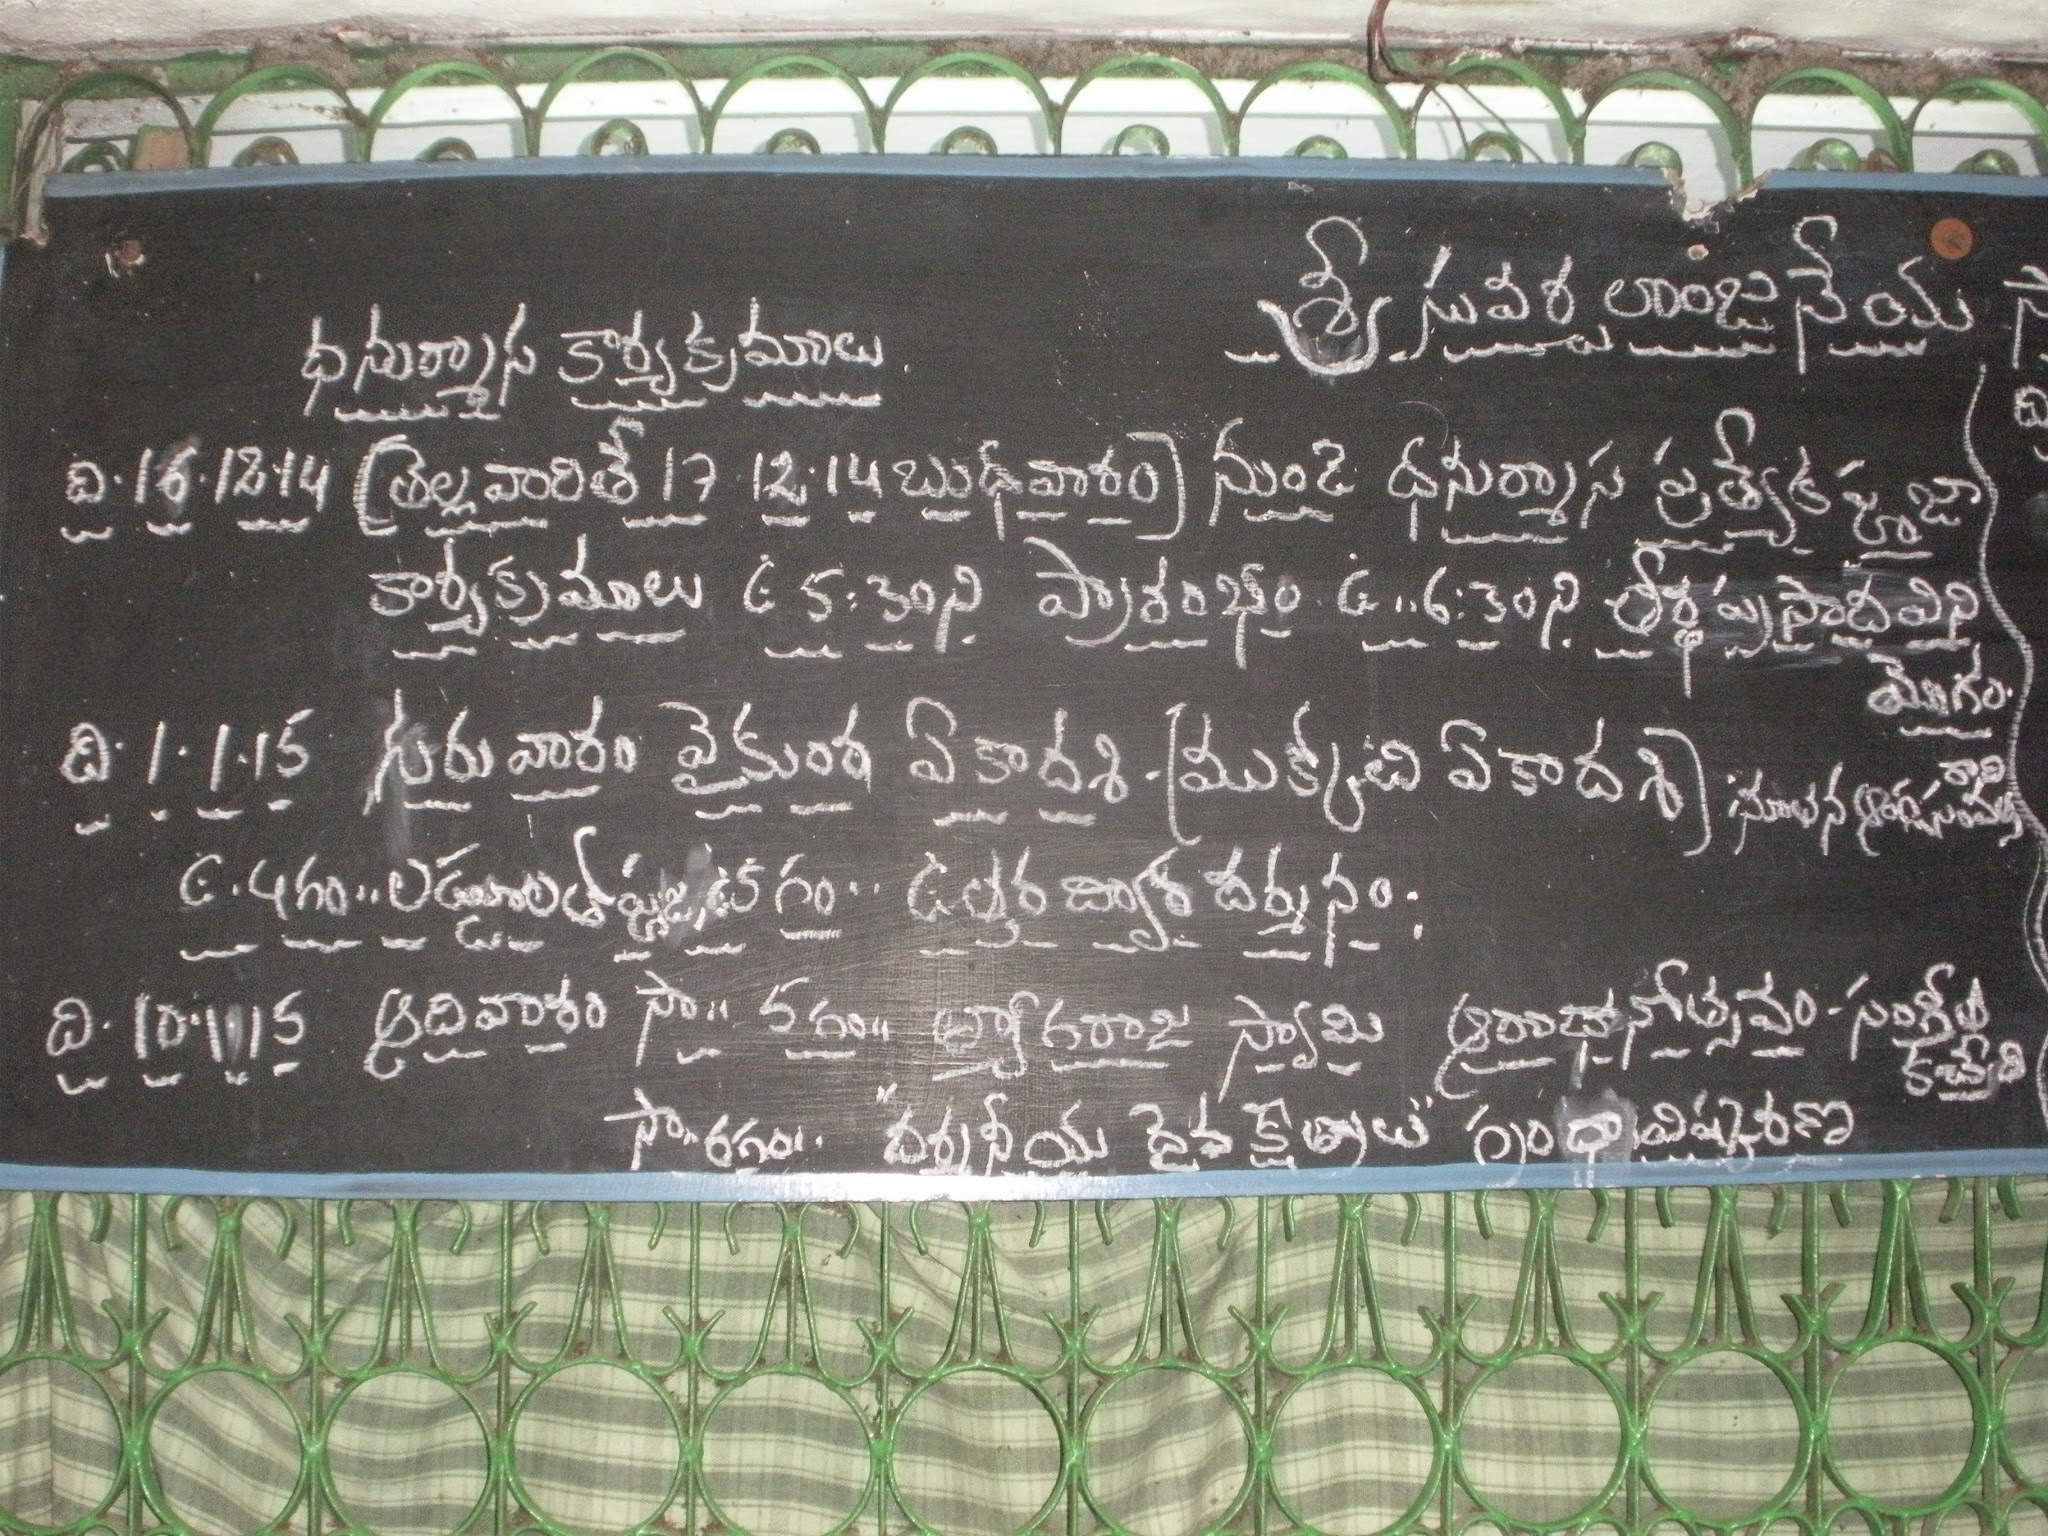 శ్రీ సువర్చలాంజనేయ
ధనుర్మాస కార్యక్రమాలు
ది. 16.12.14 (తెల్లవారితే 17 12.14 బుధవారం) నుండి ధనుర్మాస ప్రత్యేక పూజా
కార్యక్రమాలు ఉ 5:30ని ప్రారంభం ఉ..6:30ని తీర్థ ప్రసాదవిని
యోగం.
ది. 1.1.15 గురువారం వైకుంఠ ఏకాదశి - (ముక్కోటి ఏకాదశి) నూతన ఆంగ్ల సంవత్స
రాది
ఉ.4గం.. లడ్డూలతో పూజ, ఉ5 గం.. ఉత్తర ద్వార దర్శనం.
ది. 10.1.15 ఆదివారం సా.. 5గం.. త్యాగరాజ స్వామి ఆరాధనోత్సవం - సంగీత
కచ్చేరి
సా.. "దర్శనీయ దైవ క్షేత్రాలు" గ్రంధావిష్కరణ